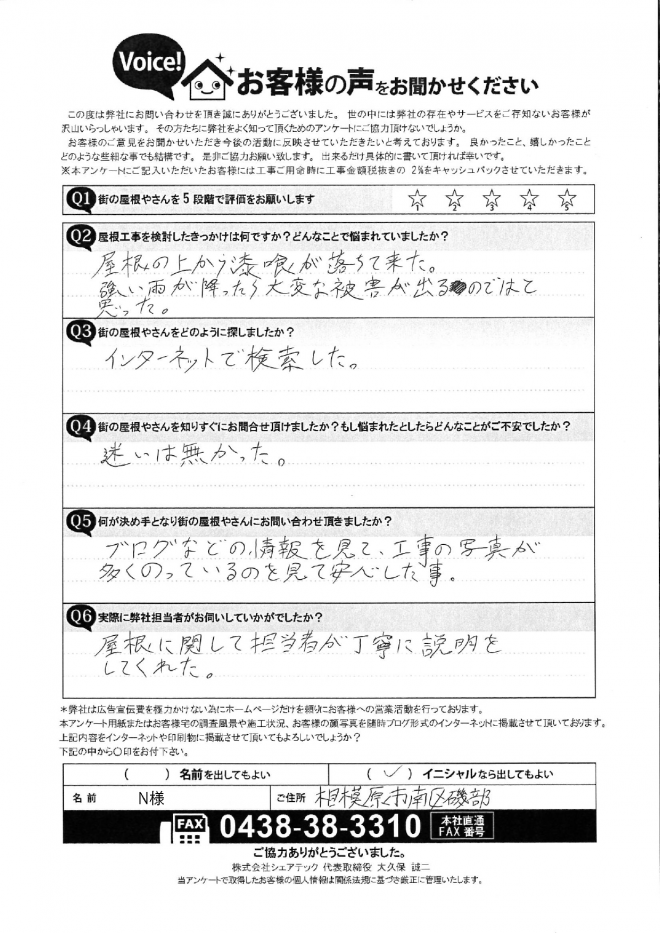 Voice!
お客様の声をお聞かせください
この度は弊社にお問い合わせを頂き誠にありがとうございました。 世の中には弊社の存在やサービスをご存知ないお客様が
沢山いらっしゃいます。 その方たちに弊社をよく知って頂くためのアンケートにご協力頂けないでしょうか。
お客様のご意見をお聞かせいただき今後の活動に反映させていただきたいと考えております。 良かったこと、嬉しかったこと
どのような些細な事でも結構です。 是非ご協力お願い致します。 出来るだけ具体的に書いて頂ければ幸いです。
※本アンケートにご記入いただいたお客様には工事ご用命時に工事金額税抜きの 2%をキャッシュバックさせていただきます。
Q1 街の屋根やさんを5段階で評価をお願いします
1 2 3 4 5
Q2 屋根工事を検討したきっかけは何ですか?どんなことで悩まれていましたか?
屋根の上から漆喰が落ちて来た。
強い雨が降ったら大変な被害が出るのではと
思った。
Q3 街の屋根やさんをどのように探しましたか?
インターネットで検索した。
Q4 街の屋根やさんを知りすぐにお問合せ頂けましたか?もし悩まれたとしたらどんなことがご不安でしたか?
迷いは無かった。
Q5 何が決め手となり街の屋根やさんにお問い合わせ頂きましたか?
ブログなどの情報を見て、工事の写真が
多くのっているのを見て安心した事。
Q6 実際に弊社担当者がお伺いしていかがでしたか?
屋根に関して担当者が丁寧に説明を
してくれた。
*弊社は広告宣伝費を極力かけない為にホームページだけを頼りにお客様への営業活動を行っております。
本アンケート用紙またはお客様宅の調査風景や施工状況、お客様の顔写真を随時ブログ形式のインターネットに掲載させて頂いております。
上記内容をインターネットや印刷物に掲載させて頂いてもよろしいでしょうか?
下記の中から○印をお付下さい。
( ) 名前を出してもよい
( ✓ ) イニシャルなら出してもよい
名前 N様
ご住所 相模原市南区磯部
FAX 0438-38-3310 本社直通 FAX 番号
ご協力ありがとうございました。
株式会社シェアテック 代表取締役 大久保 誠二
当アンケートで取得したお客様の個人情報は関係法規に基づき厳正に管理いたします。